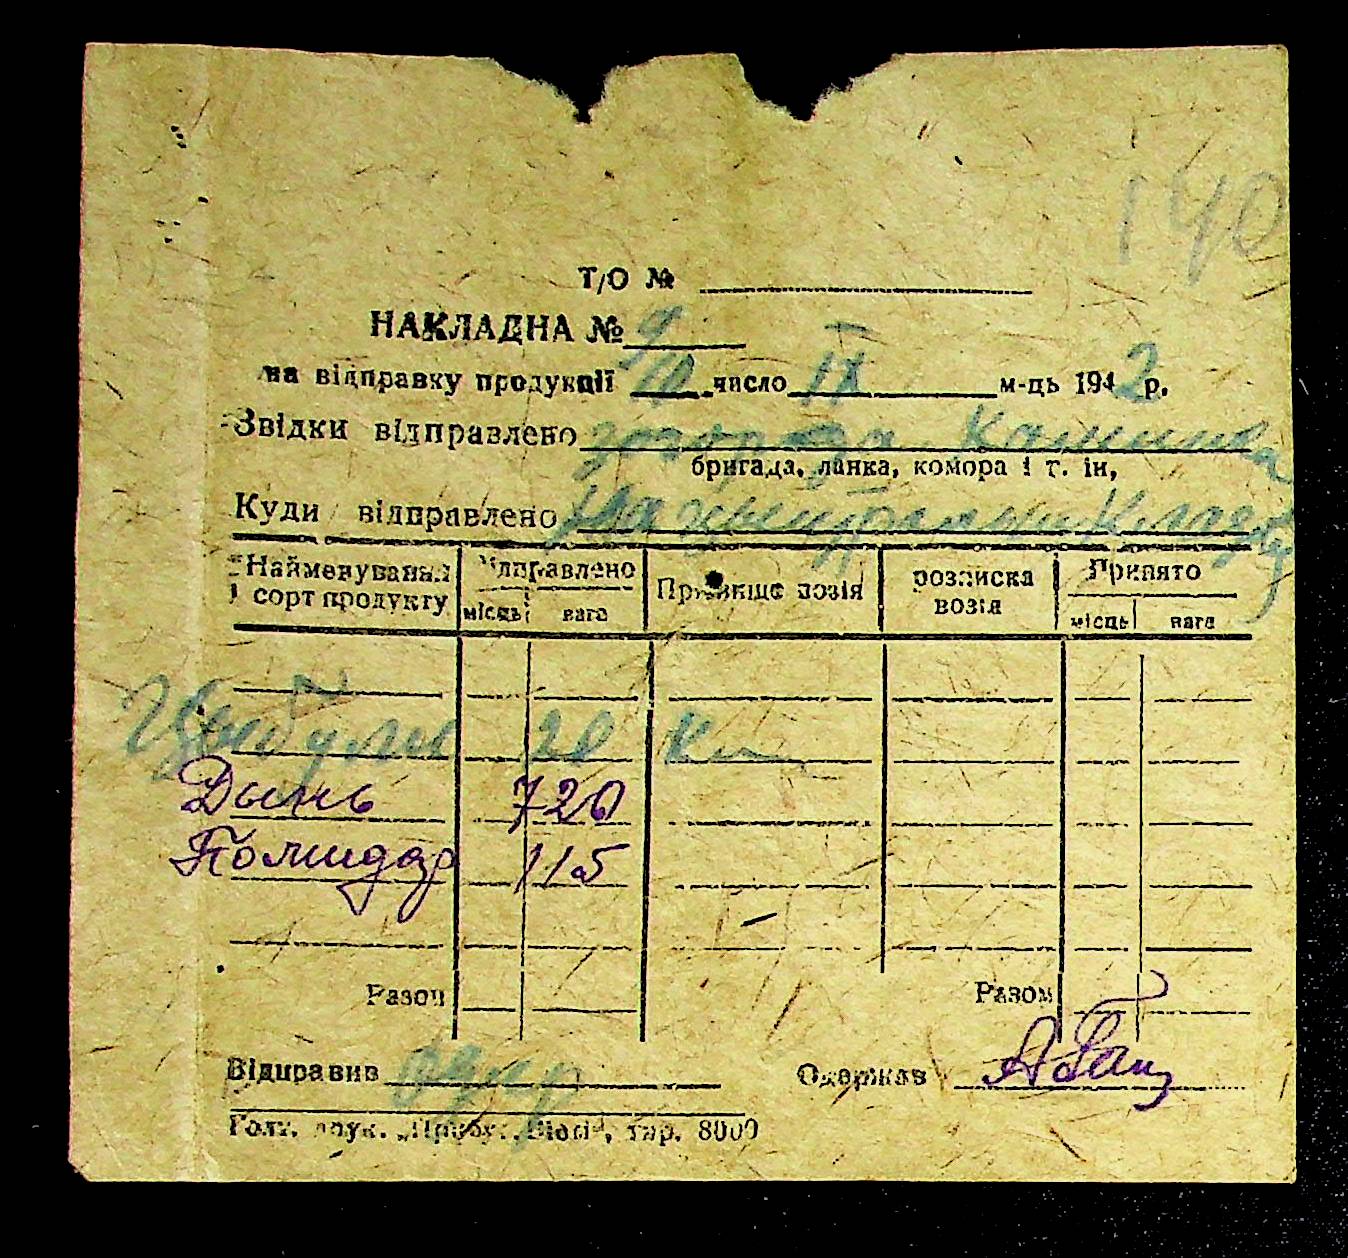 140
Т/О №
НАКЛАДНА № 9
на відправку продукції 10 число IX м-ць 1942 р.
Звідки відправлено
бригада, ланка, комора і т. ін,
Куди відправлено
Найменування і сорт продукту Відправлено місць вага Прізвище возія розписка возія Прийнято місць вага
Цыбули 20 Кг
Дынь 720
Помидор 115
Разом Разом
Відправив Одержав
Голт. друк. „Прибуж. Вісті", тир. 8000